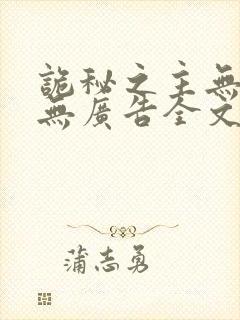 詭秘之主無
無廣告全文
蒲志勇